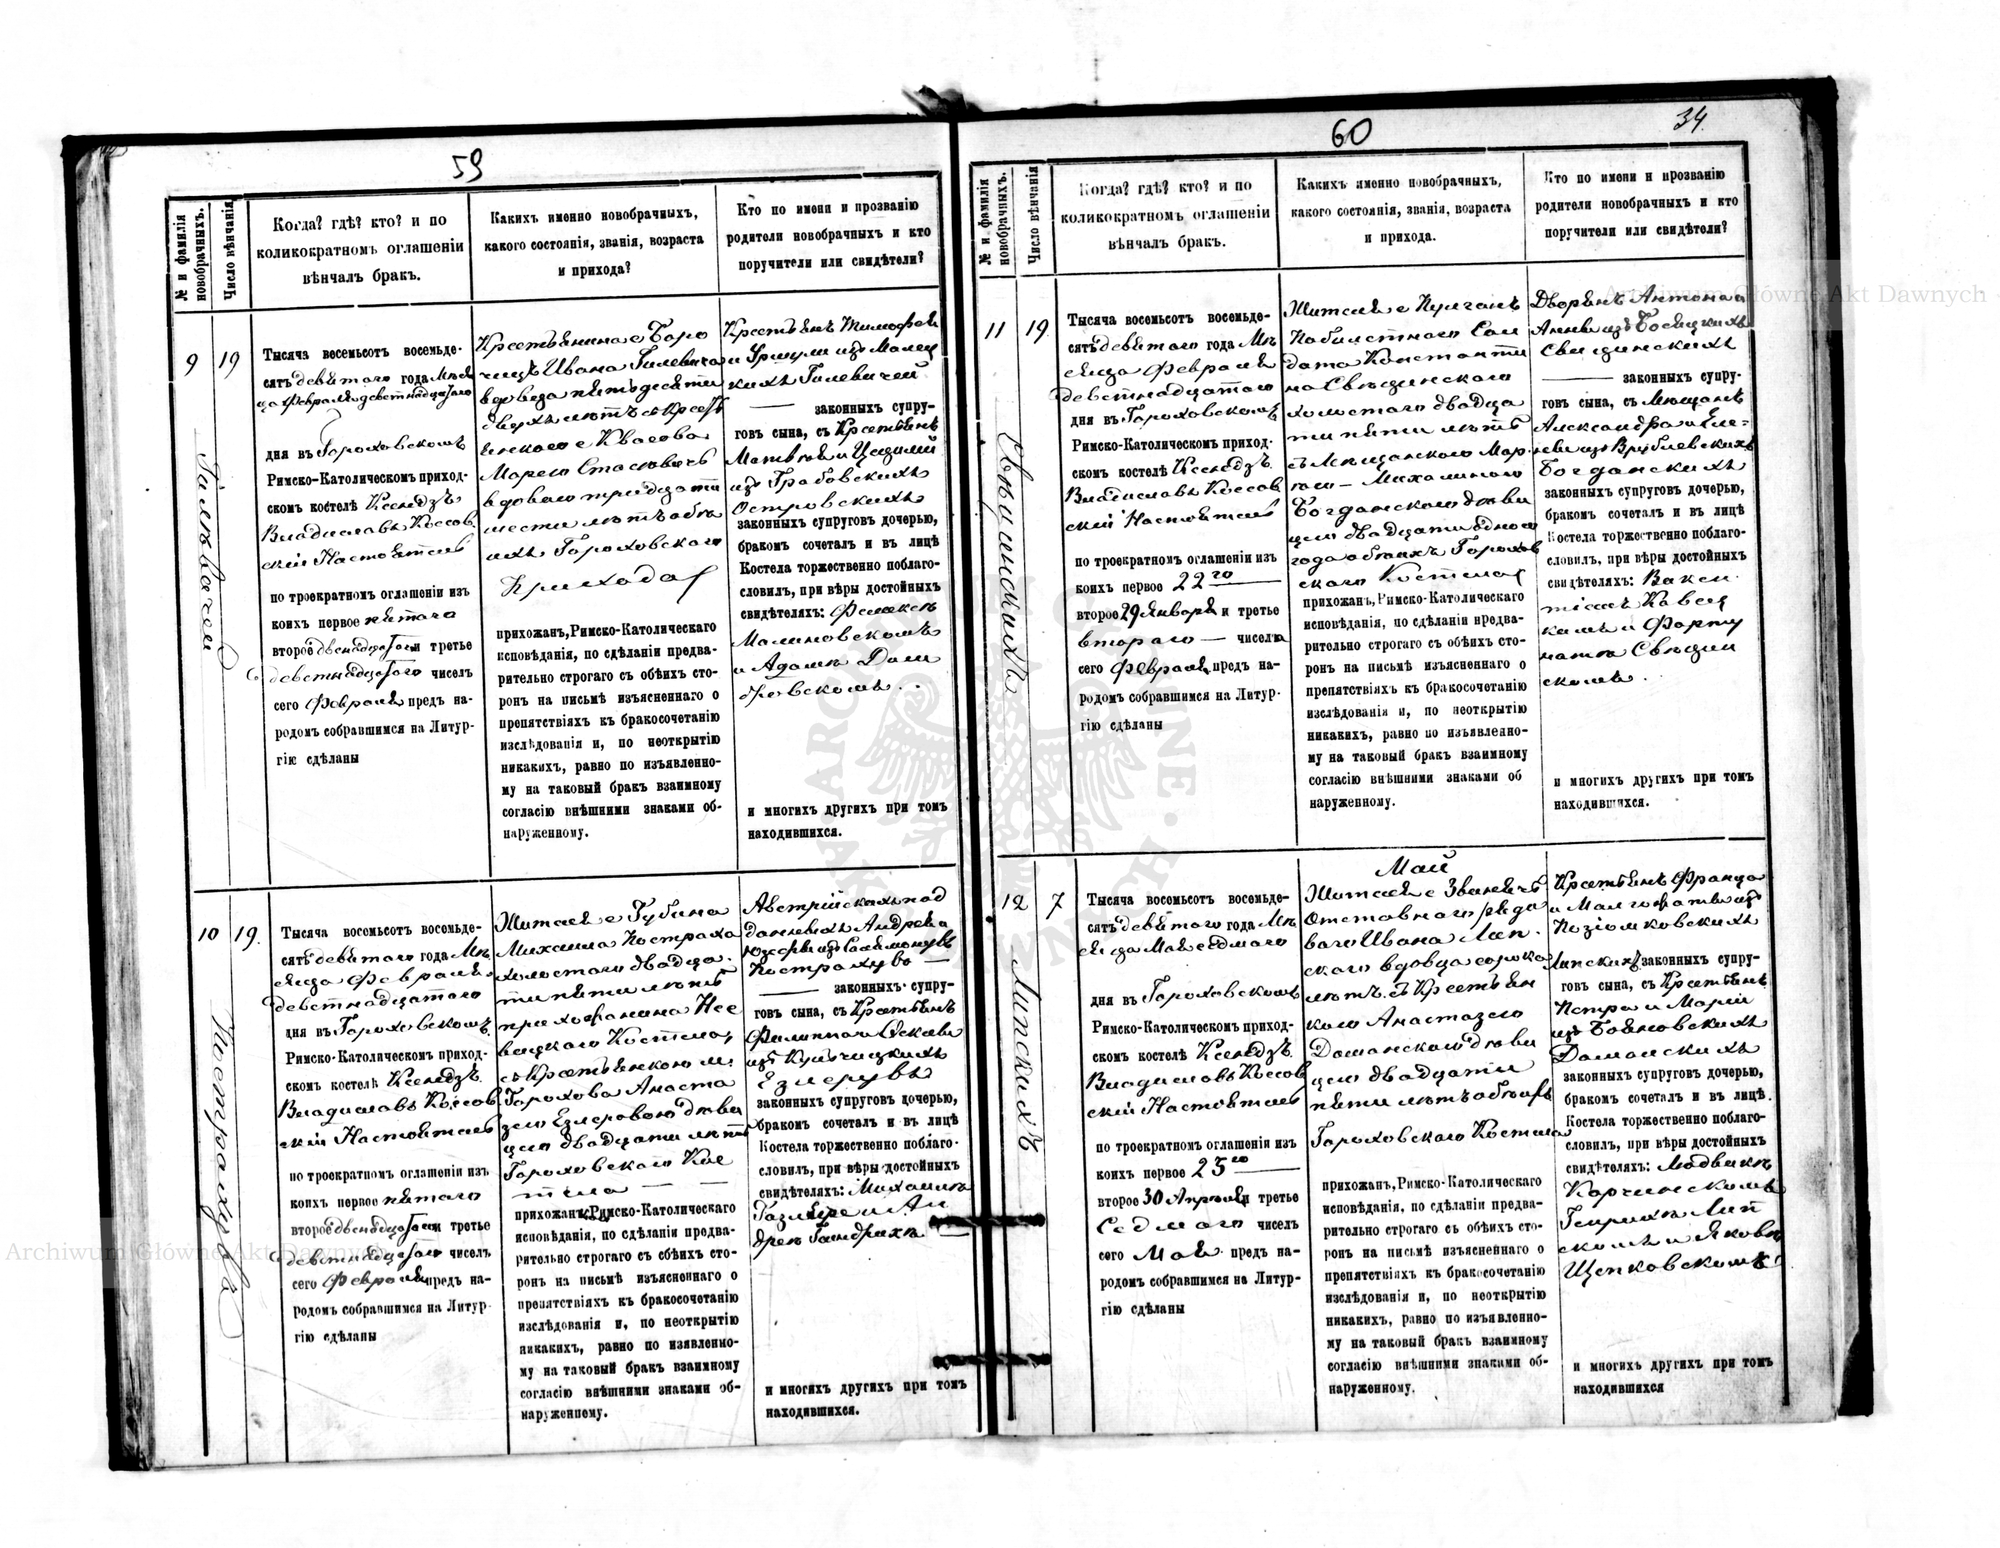 59
№ и фамилія новобрачныхъ.
Число вѣнчанія
Когда? гдѣ? кто? и по
коликократномъ оглашеніи
вѣнчалъ бракъ.
Какихъ именно новобрачныхъ,
какого состоянія, званія, возраста
и прихода?
Кто по имени и прозванію
родители новобрачныхъ и кто
поручители или свидѣтели?
9
19
Тысяча весемьсотъ восемьде-
сятъ девятаго года
Февраля девятнадцатого
дня въ Гороховскомъ
Римско-Католическомъ приход-
скомъ костелѣ Ксендзъ
Владиславъ Коссов
скій Настоятель
по троекратномъ оглашеніи изъ
коихъ первое пятаго
второе двенадцатого и третье
девятнадцатого чиселъ
сего Февраля предъ на-
родомъ собравшимся на Литур-
гію сдѣланы
Крестьянина с
Ивана Гилевича
вдовца пятьдесяти
двухъ лѣтъ съ Крестъ
янскою с Квасова
Марею Стасювичъ
вдовою тридцати
шести лѣтъ обѣ
ихъ Гороховского
Прихода
прихожанъ, Римско-Католическаго
исповѣданія, по сдѣланіи предва-
рительно строгаго съ обѣихъ сто-
ронъ на письмѣ изъясненнаго о
препятствіяхъ къ бракосочетанію
изслѣдованія и, по неоткрытію
никакихъ, равно по изъявленно-
му на таковый бракъ взаимному
согласію внѣшними знаками об-
наруженному.
Крестьянъ Тимофея
и Уршули изъ
Гилевичей
законныхъ супру-
говъ сына, съ Крестьянъ
Матвѣя и Цециліи
изъ Грабовскихъ
Островскихъ
законныхъ супруговъ дочерью,
бракомъ сочеталъ и въ лицѣ
Костела торжественно поблаго-
словилъ, при вѣры достойныхъ
свидѣтеляхъ: Феликсѣ
Малиновскомъ
и Адамѣ Дом
бровскомъ
и многихъ другихъ при томъ
находившихся.
10
19.
Тысяча восемьсотъ восемьде-
сятъ девятаго года Мѣ
сяца Февраля
девятнадцатого
дня въ Гороховскомъ
Римско-Католическомъ приход-
скомъ костелѣ Ксендзъ
Владиславъ Коссов
скій Настоятель
по троекратномъ оглашеніи изъ
коихъ первое пятаго
второе двенадцатого и третье
девятнадцатого чиселъ
сего Февраля предъ на-
родомъ собравшимся на Литур-
гію сдѣланы
Жителя с Губина
Михаила Костраха
холостаго двадца
ти пяти лѣтъ
прихожанина Нес
вецкаго Костела,
съ Крестьянкою м.
Горохова Анаста
зею Езлеровою дѣви
цею двадцати лѣтъ
Гороховского Кос
тела
прихожанъ, Римско-Католическаго
исповѣданія, по сдѣланіи предва-
рительно строгаго съ обѣихъ сто-
ронъ на письмѣ изъясненнаго о
препятствіяхъ къ бракосочетанію
изслѣдованія и, по неоткрытію
никакихъ, равно по изявленно-
му на таковый бракъ взаимному
согласію внѣшними знаками об-
наруженному.
Австрійскихъ под
данныхъ Андрея и
Юзефы изъ
Кострахувъ
законныхъ супру-
говъ сына, съ Крестьянъ
изъ Кульчицкихъ
Езлерувъ
законныхъ супруговъ дочерью,
бракомъ сочеталъ и въ лицѣ
Костела торжественно поблаго-
словилъ, при вѣры достойныхъ
свидѣтеляхъ: Михаилѣ
и Ан
дреѣ
и многихъ другихъ при томъ
находившихся.
Кострахувъ
60
34.
№ и фамилія новобрачныхъ.
Число вѣнчанія
Когда? гдѣ? кто? и по
коликократномъ оглашеніи
вѣнчалъ бракъ.
Какихъ именно новобрачныхъ,
какого состоянія, званія, возраста
и прихода.
Кто по имени и прозванію
родители новобрачныхъ и кто
поручители или свидѣтели?
11
19
Тысяча восемьсотъ восемьде-
сятъ девятаго года Мѣ
сяца Февраля
девятнадцатого
дня въ Гороховскомъ
Римско-Католическомъ приход-
скомъ костелѣ Ксендзъ
Владиславъ Коссов
скій Настоятель
по троекратномъ оглашеніи изъ
коихъ первое 22го
второе 29 Января и третье
втораго — числа
сего Февраля предъ на-
родомъ собравшимся на Литур-
гію сдѣланы
Жителя с
Сол
дата Константи
на Свѣцинского
холостаго двадца
ти пяти лѣтъ
съ Мѣщанского
Михалиною
Богданскою дѣви
цею двадцати одного
года обоихъ Горохов
ского Костела
прихожанъ, Римско-Католическаго
исповѣданія, по сдѣланіи предва-
рительно строгаго съ обѣихъ сто-
ронъ на письмѣ изъясненнаго о
препятствіяхъ къ бракосочетанію
изслѣдованія и, по неоткрытію
никакихъ, равно по изъявленно-
му на таковый бракъ взаимному
согласію внѣшними знаками об
наруженному.
Дворянъ Антона и
Анны изъ
Свѣцинскихъ
законныхъ супру-
говъ сына, съ Мѣщанъ
Александра и Еле-
изъ Врублевскихъ
Богданскихъ
законныхъ супруговъ дочерью,
бракомъ сочеталъ и въ лицѣ
Костела торжественно поблаго-
словилъ, при вѣры достойныхъ
свидѣтеляхъ:
и Форту
натѣ Свѣцин
скомъ.
и многихъ другихъ при томъ
находившихся.
12
7
Липскихъ
Май
Тысяча восемьсотъ восемьде-
сятъ девятаго года Мѣ
сяца Мая седмаго
дня въ Гороховскомъ
Римско-Католическомъ приход-
скомъ костелѣ Ксендзъ
Владиславъ Коссов
скій Настоятель
по троекратномъ оглашеніи изъ
коихъ первое 23го
второе 30 Апрѣля и третье
Седмаго чиселъ
сего Мая предъ на-
родомъ собравшимся на Литур-
гію сдѣланы
Жителя с
Отставного рядо
ваго Ивана Лип
ского вдовца сорока
лѣтъ съ Крестьян
кою Анастазею
Доманскою дѣви
цею двадцати
пяти лѣтъ обоихъ
Гороховского Костела
прихожанъ, Римско-Католическаго
исповѣданія, по сдѣланіи предва-
рительно строгаго съ обѣихъ сто-
ронъ на письмѣ изъясненнаго о
препятствіяхъ къ бракосочетанію
изслѣдованія и, по неоткрытію
никакихъ, равно по изъявленно-
му на таковый бракъ взаимному
согласію внѣшними знаками об-
наруженному.
Крестьянъ Франца
и Малгожаты изъ
Козіомковскихъ
Липскихъ законныхъ супру-
говъ сына, съ Крестьянъ
Петра и Маріи
изъ Бояновскихъ
Доманскихъ
законныхъ супруговъ дочерью,
бракомъ сочеталъ и въ лицѣ
Костела торжественно поблаго-
словилъ, при вѣры достойныхъ
свидѣтеляхъ: Людвикѣ
Корчинскомъ
Генрихѣ Лип
скомъ и Яковѣ
Щепковскомъ
и многихъ другихъ при томъ
находившихся
Archiwum Główne Akt Dawnych
Archiwum Główne Akt Dawnych